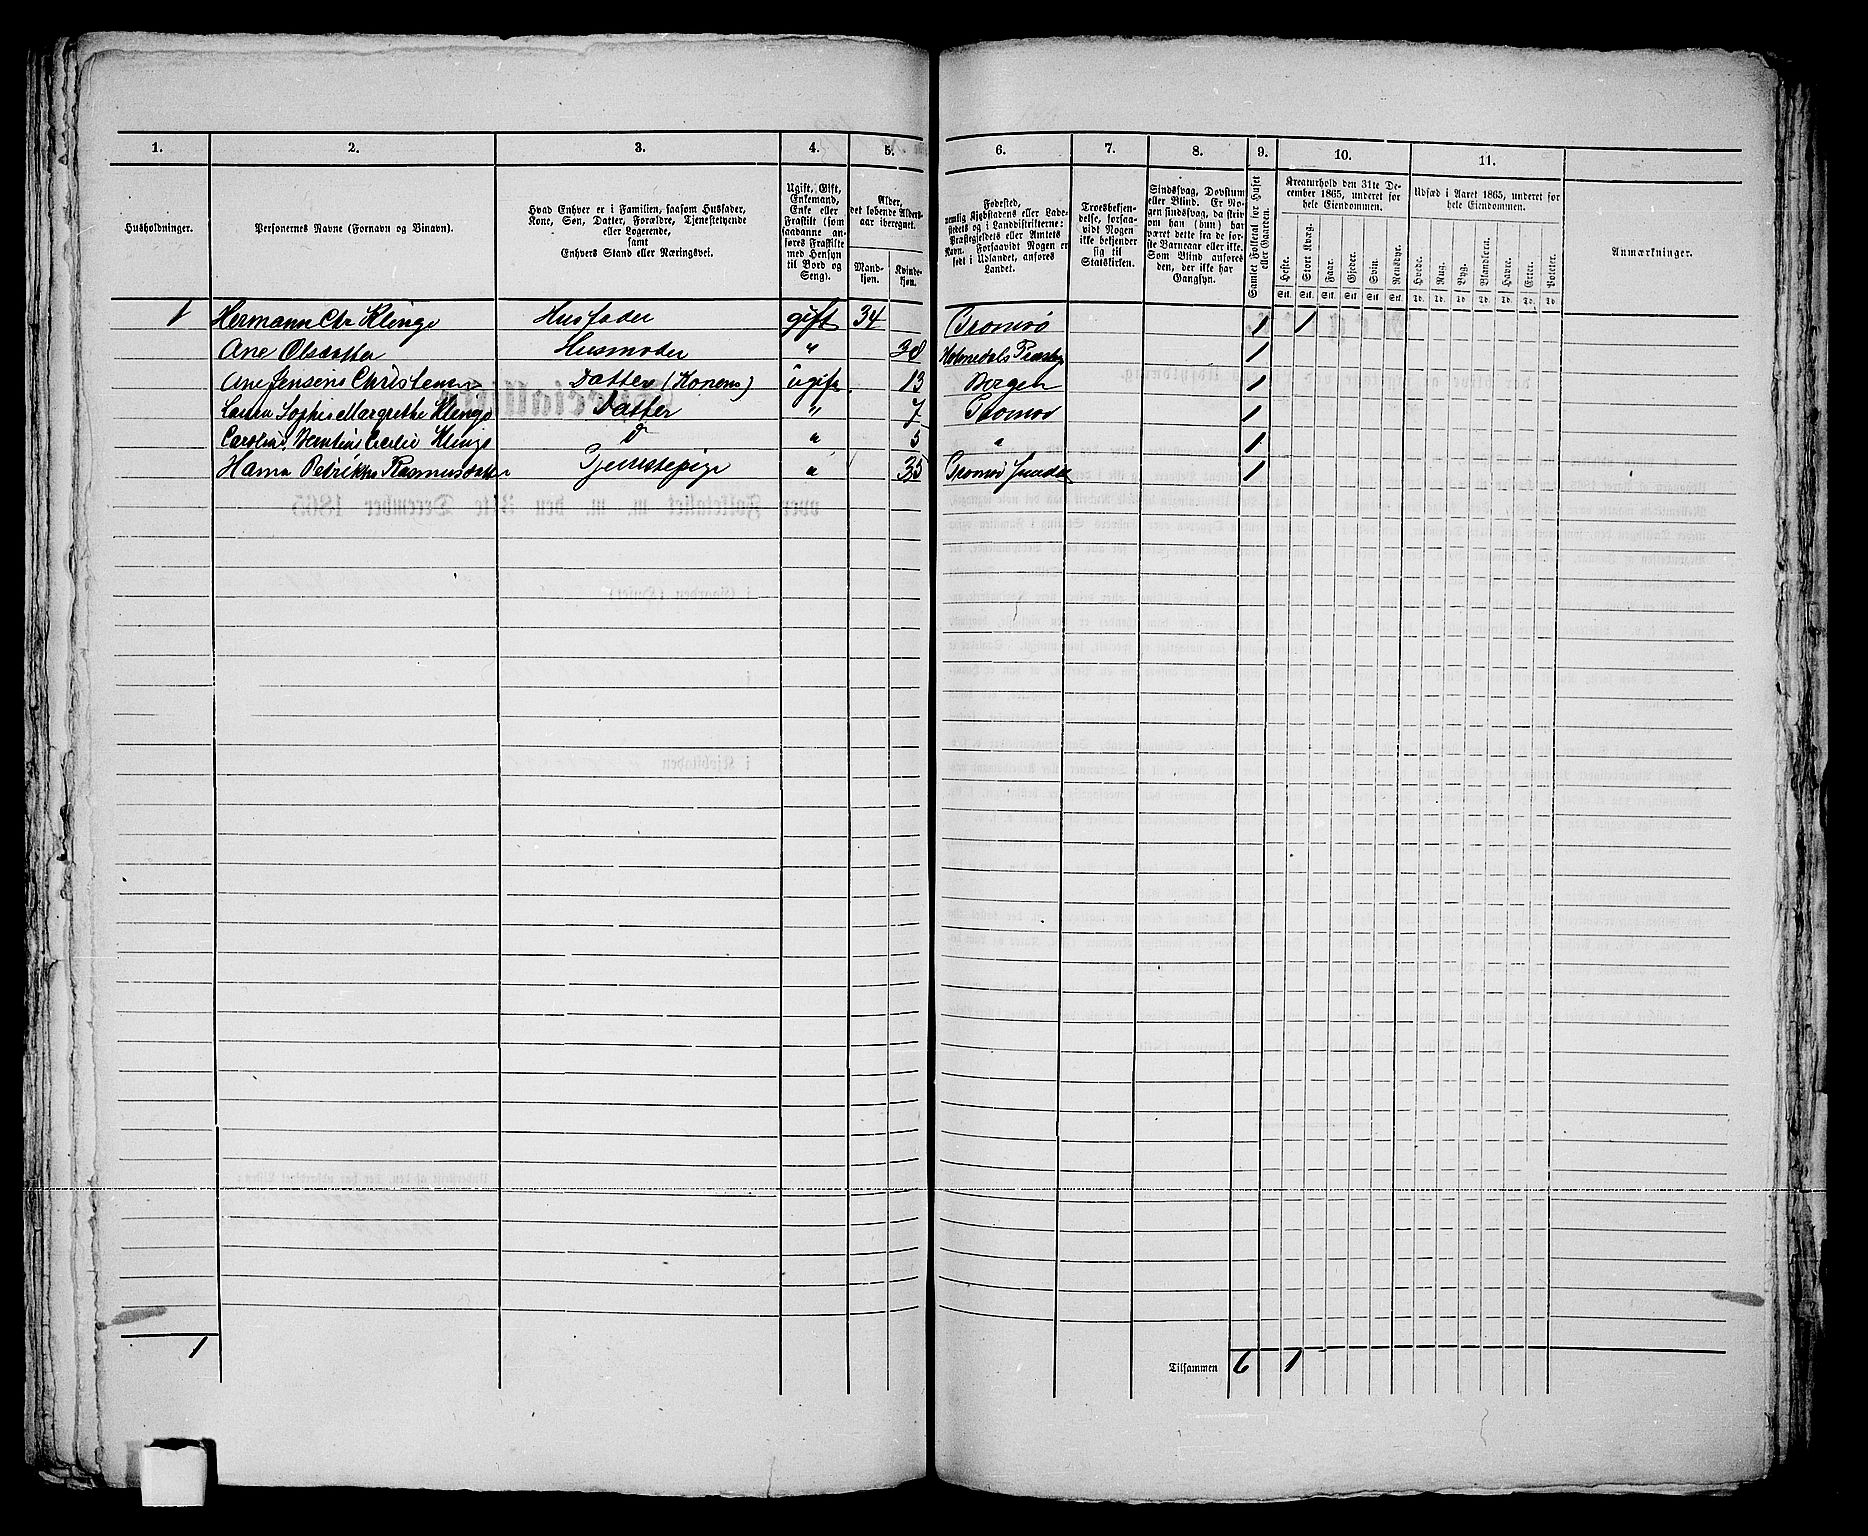 1. 2. 3. 4. 5. 6. 7. 8. 9. 10. 11.
Husholdninger.
Personernes Navne (Fornavn og Binavn).
Hvad Enhver er i Familien, saasom Husfader,
Kone, Søn, Datter, Forældre, Tjenestetyende
eller Logerende,
samt
Enhvers Stand eller Næringsvei.
Ugift, Gift,
Enkemand,
Enke eller
Fraskilt (som
saadanne an-
føres Fraskilte
med Hensyn
til Bord og
Seng).
Alder,
det løbende Alders-
aar iberegnet.
Mand-
kjøn.
Kvinde-
kjøn.
Fødested,
nemlig Kjøbstadens eller Lade-
stedets og i Landdistrikterne:
Præstegjeldets eller Amtets
Navn. Forsaavidt Nogen er
født i Udlandet, anføres
Landet.
Troesbekjen-
delse, forsaa-
vidt Nogen
ikke bekjender
sig til
Statskirken.
Sindssvag, Døvstum
eller Blind. Er No-
gen sindssvag, da skriv
om han (hun) har
været dette fra de før-
ste Barneaar eller ikke.
Som Blind anføres
den, der ikke har
Gangsyn.
Samlet Folketal for Huset
eller Gaarden.
Kreaturhold den 31te De-
cember 1865, underet for
hele Eiendommen.
Heste. Stort Kvæg. Faar. Gjeder. Svin. Rensdyr.
Stk. Stk. Stk. Stk. Stk. Stk.
Udsæd i Aaret 1865, underet for
hele Eiendommen.
Hvede. Rug. Byg. Blandkorn. Havre. Erter. Poteter.
Td. Td. Td. Td. Td. Td. Td.
Anmærkninger.
1 Hermann Chr Klinge Husfader gift 34 Tromsø 1 1
Ane Olsdatter Husmoder " 38 Holmedals 1
Ane Jensine Christensen Datter (Konens) ugift 13 Bergen 1
Laura Sophie Margrethe Klinge Datter " 7 Tromsø 1
Caroline Cecilie Klinge D " 5 " 1
Hanna Petrikke Rasmusdatter Tjenstepige " 35 Tromsø 1
1 Tilsammen 6 1